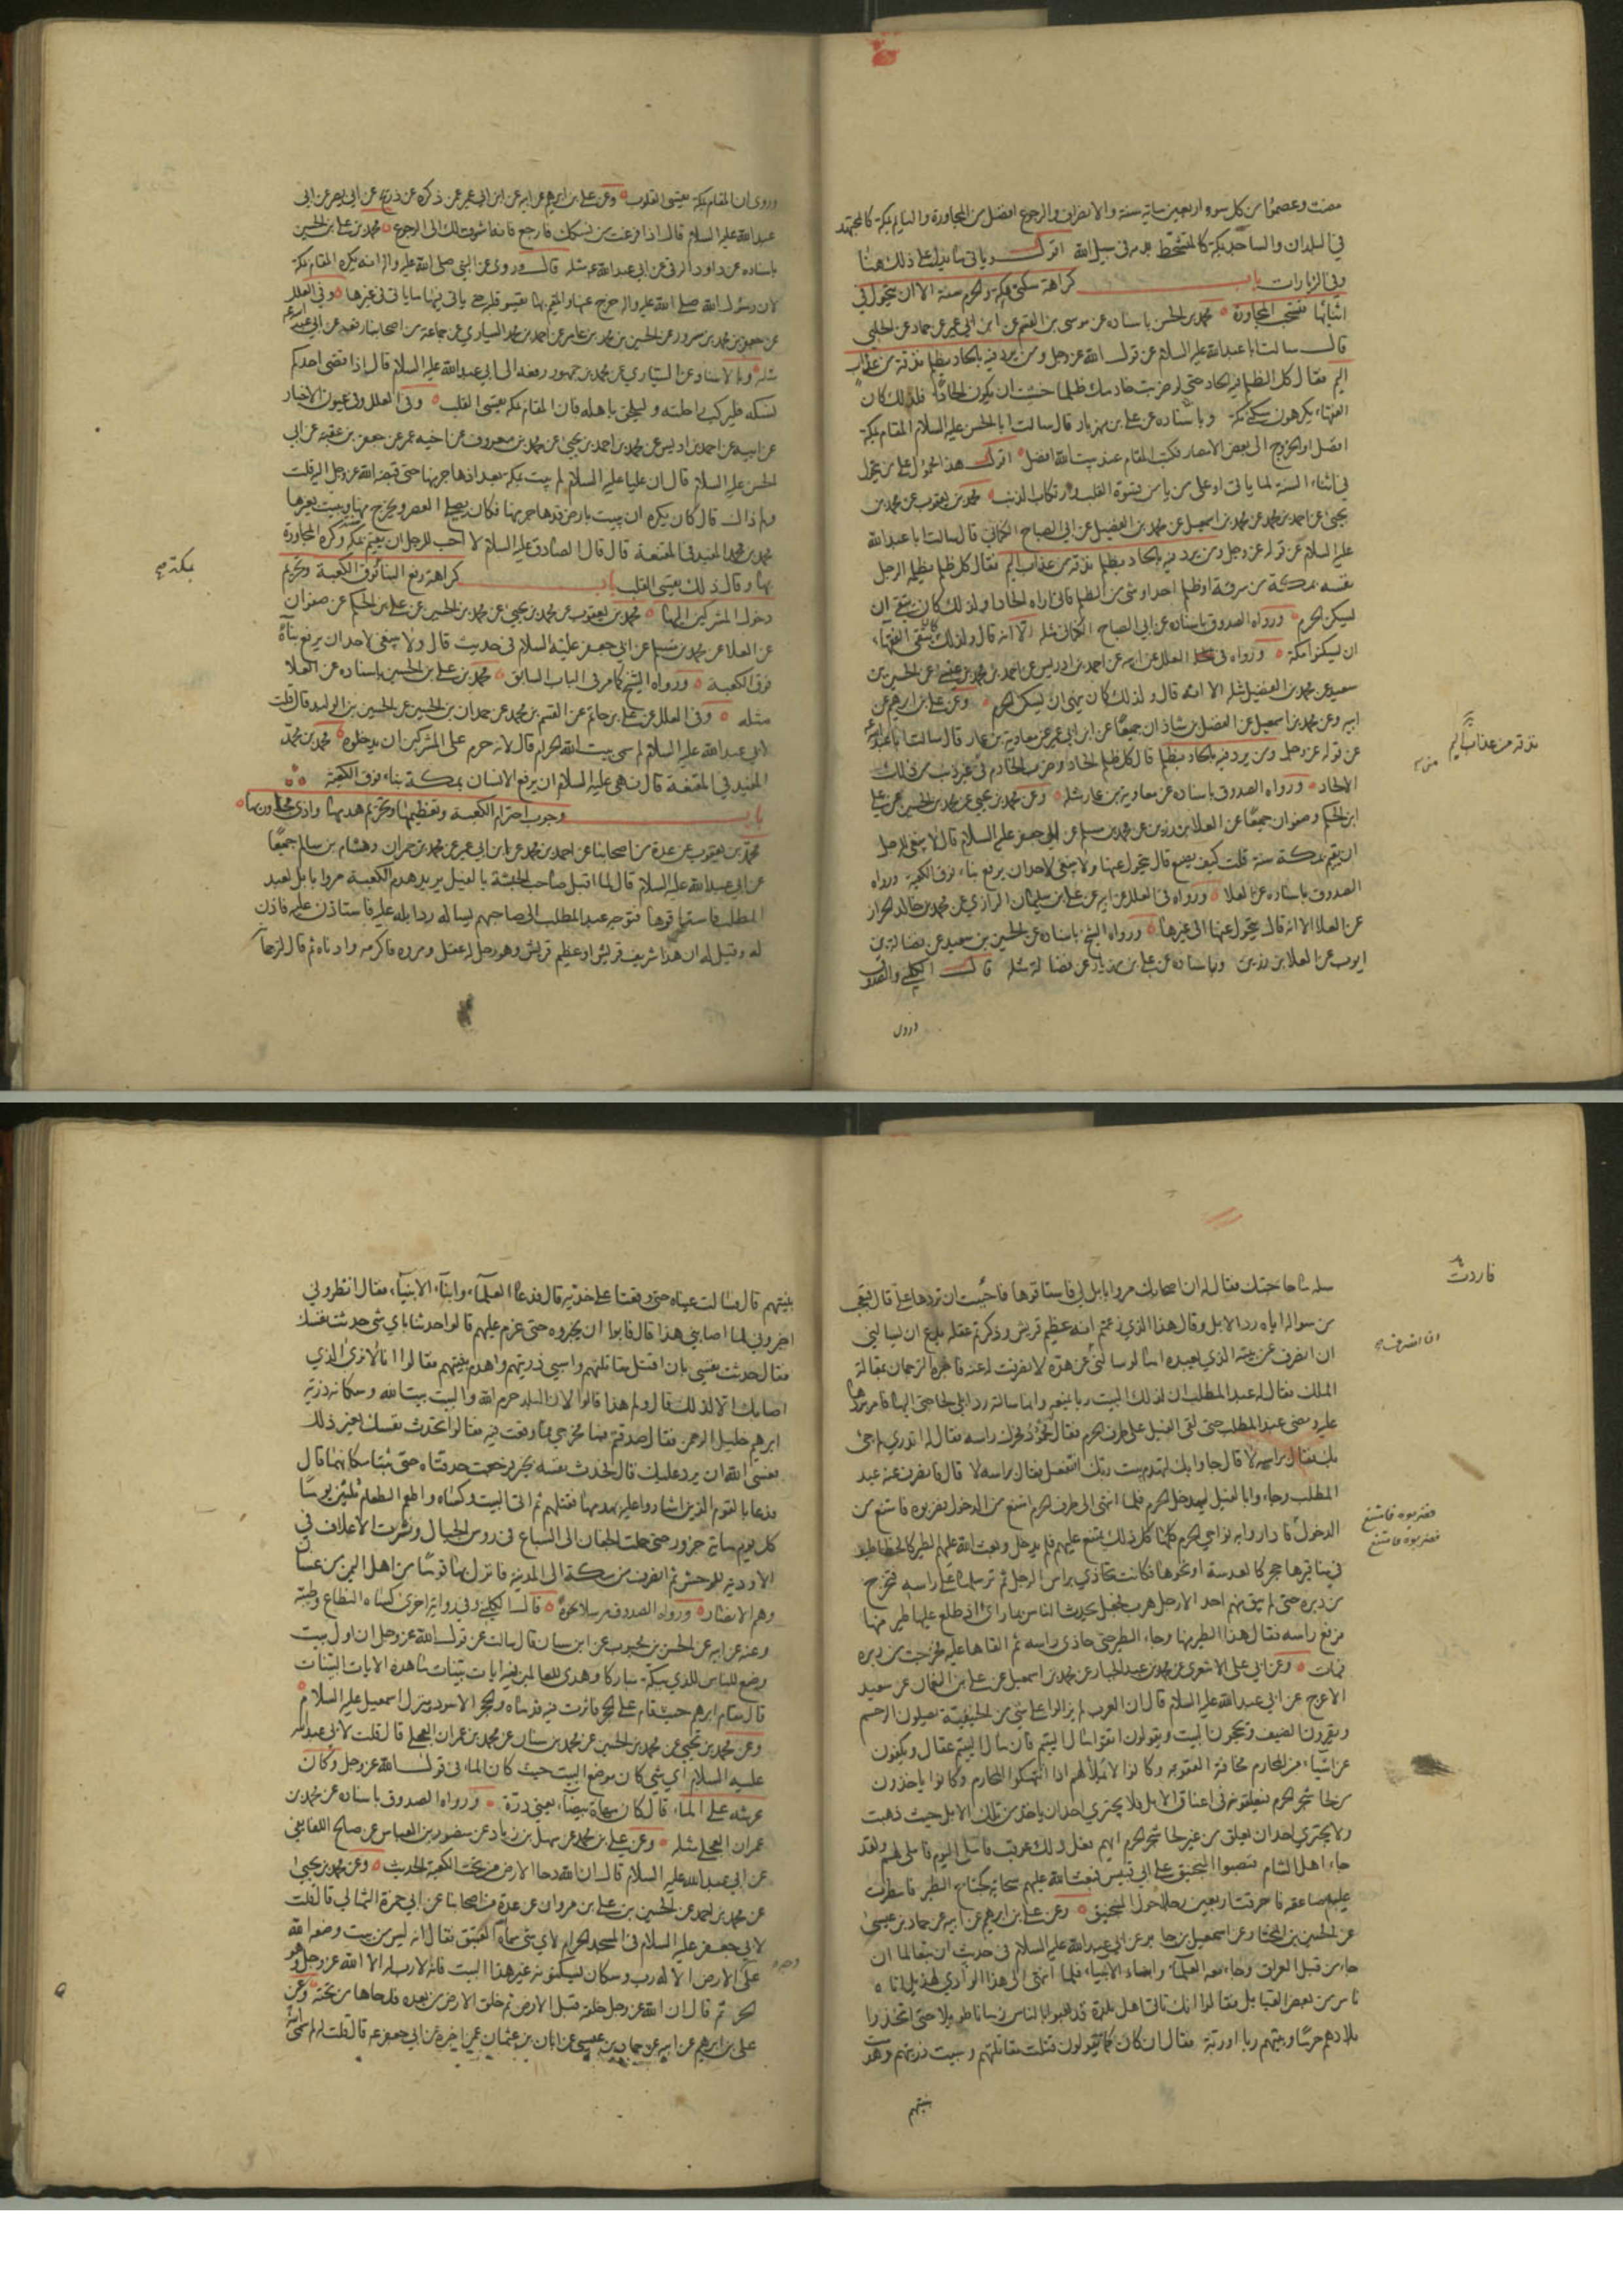 مضت وعصموا من كل سوء اربعين ومائة سنة والانصراف والرجوع افضل من المجاورة والنايم بمكة كالمجتهد
في البلدان والساجد بمكة كالمتشحط بدمه في سبيل الله اقول وياتي ما يدل على ذلك هنا
وفي الزيارات باب كراهة سكنى مكة والحرم سنة الا ان يتحول في
اثنائها فتستحب المجاورة محمد بن الحسن باسناده عن موسى بن القسم عن ابن ابي عمير عن حماد عن الحلبي
قال سالت ابا عبد الله عليه السلام عن قول الله عز وجل ومن يرد فيه بالحاد بظلم نذقه من عذاب
اليم فقال كل الظلم فيه الحاد حتى لو ضربت خادمك ظلما خشيت ان يكون الحادا فلذلك كان
الفقهاء يكرهون سكنى مكة وباسناده عن علي بن مهزيار قال سالت ابا الحسن عليه السلام المقام بمكة
افضل او الخروج الى بعض الامصار فكتب المقام عند بيت الله افضل اقول هذا محمول على من يتحول
في اثناء السنة لما ياتي او على من يامن قسوة القلب وارتكاب الذنب محمد بن يعقوب عن محمد بن
يحيى عن احمد بن محمد عن محمد بن اسمعيل عن محمد بن الفضيل عن ابي الصباح الكناني قال سالت ابا عبد الله
عليه السلام عن قوله عز وجل ومن يرد فيه بالحاد بظلم نذقه من عذاب اليم فقال كل ظلم يظلم الرجل
نفسه بمكة من سرقة او ظلم احد او شيء من الظلم فاني اراه الحادا ولذلك كان يتقى ان
يسكن الحرم ورواه الصدوق باسناده عن ابي الصباح الكناني مثله الا انه قال ولذلك كان يتقى الفقهاء
ان يسكنوا مكة ورواه في العلل عن ابيه عن احمد بن ادريس عن احمد بن محمد بن عيسى عن الحسين بن
سعيد عن محمد بن الفضيل مثله الا انه قال ولذلك كان ينهى ان يسكن الحرم وعن علي بن ابرهيم عن
ابيه وعن محمد بن اسمعيل عن الفضل بن شاذان جميعا عن ابن ابي عمير عن معاوية بن عمار قال سالت ابا عبد الله
عن قوله عز وجل ومن يرد فيه بالحاد بظلم قال كل ظلم الحاد وضرب الخادم في غير ذنب من ذلك
الالحاد ورواه الصدوق باسناده عن معاوية بن عمار مثله وعن محمد بن يحيى عن محمد بن الحسين عن علي
ابن الحكم وصفوان جميعا عن العلا بن رزين عن محمد بن مسلم عن ابي جعفر عليه السلام قال لا ينبغي للرجل
ان يقيم بمكة سنة قلت كيف يصنع قال يتحول عنها ولا ينبغي لاحد ان يرفع بناء فوق الكعبة ورواه
الصدوق باسناده عن العلا ورواه في العلل عن ابيه عن علي بن سليمان الرازي عن محمد بن خالد الخزاز
عن العلا الا انه قال يتحول عنها الى غيرها ورواه الشيخ باسناده عن الحسين بن سعيد عن فضالة بن
ايوب عن العلا بن رزين وباسناده عن علي بن مهزيار عن فضالة مثله قال الكليني والصدوق
وروى
نذقه من عذاب اليم
وروى ان المقام بمكة يقسي القلوب وعن علي بن ابرهيم عن ابيه عن ابن ابي عمير عن ذكره عن ذريح عن ابي بصير عن ابي
عبد الله عليه السلام قال اذا فرغت من نسكك فارجع فانه اشوق لك الى الرجوع محمد بن علي بن الحسين
باسناده عن داود الرقي عن ابي عبد الله عه مثله قال وروى عن النبي صلى الله عليه واله انه يكره المقام بمكة
لان رسول الله صلى الله عليه واله اخرج عنها والمقيم بها يقسو قلبه حتى ياتي فيها ما ياتي في غيرها وفي العلل
عن جعفر بن محمد بن مسرور عن الحسين بن محمد بن عامر عن احمد بن محمد السياري عن جماعة من اصحابنا رفعه عن ابي عبد الله
مثله وبالاسناد عن السياري عن محمد بن جمهور رفعه الى ابي عبد الله عليه السلام قال اذا قضى احدكم
نسكه فليركب راحلته وليلحق باهله فان المقام بمكة يقسي القلب وفي العلل وفي عيون الاخبار
عن ابيه عن احمد بن ادريس عن محمد بن احمد بن يحيى عن محمد بن معروف عن اخيه عمر عن جعفر بن عقبة عن ابي
الحسن عليه السلام قال ان عليا عليه السلام لم يبت بمكة بعد اذ هاجر منها حتى قبضه الله عز وجل اليه قلت
ولم ذاك قال كان يكره ان يبيت بارض قد هاجر منها فكان يصلي العصر ويخرج منها ويبيت بغيرها
محمد بن محمد المفيد في المقنعة قال قال الصادق عليه السلام لا احب للرجل ان يقيم بمكة سنة وكره المجاورة
بها وقال ذلك يقسي القلب باب كراهة رفع البناء فوق الكعبة وتحريم
دخول المشركين اليها محمد بن يعقوب عن محمد بن يحيى عن محمد بن الحسين عن علي بن الحكم عن صفوان
عن العلا عن محمد بن مسلم عن ابي جعفر عليه السلام في حديث قال ولا ينبغي لاحد ان يرفع بناءه
فوق الكعبة ورواه الشيخ كما مر في الباب السابق محمد بن علي بن الحسين باسناده عن العلا
مثله وفي العلل عن علي بن حاتم عن القسم بن محمد عن حمدان بن الحسين عن الحسين بن الوليد قال قلت
لابي عبد الله عليه السلام لم سمي بيت الله الحرام قال لانه حرم على المشركين ان يدخلوه محمد بن محمد
المفيد في المقنعة قال نهى عليه السلام ان يرفع الانسان بمكة بناء فوق الكعبة
باب وجوب احترام الكعبة وتعظيمها وتحريم هدمها واذى مجاوريها
محمد بن يعقوب عن عدة من اصحابنا عن احمد بن محمد عن ابن ابي عمير عن محمد بن حمران وهشام بن سالم جميعا
عن ابي عبد الله عليه السلام قال لما اقبل صاحب الحبشة بالفيل يريد هدم الكعبة مروا بابل لعبد
المطلب فاستاقوها فتوجه عبد المطلب الى صاحبهم يساله رد ابله عليه فاستاذن عليه فاذن
له وقيل له ان هذا شريف قريش او عظيم قريش وهو رجل له عقل ومروة فاكرمه وادناه ثم قال لترجمانه
بمكة
سله ما حاجتك فقال له ان اصحابك مروا بابل لي فاستاقوها فاحببت ان تردها علي قال فتعجب
من سواله اياه رد الابل وقال هذا الذي زعمتم انه عظيم قريش وذكرتم عقله يدع ان يسالني
ان انصرف عن بيته الذي يعبده اما لو سالني عن هده لانصرفت له عنه فاخبره الترجمان بمقالة
الملك فقال له عبد المطلب ان لذلك البيت ربا يمنعه وانما سالته رد ابلي لحاجتي اليها فامر بردها
عليه ومضى عبد المطلب حتى لقي الفيل على طرف الحرم فقال محمود فحرك راسه فقال له اتدري لم جئ
بك فقال براسه لا قال جاوا بك لتهدم بيت ربك افتفعل فقال براسه لا قال فانصرف عنه عبد
المطلب وجاءوا بالفيل ليدخل الحرم فلما انتهى الى طرف الحرم امتنع من الدخول فضربوه فامتنع من
الدخول فاداروا به نواحي الحرم كلها كل ذلك يمتنع عليهم فلم يدخل وبعث الله عليهم الطير كالخطاطيف
في مناقيرها حجر كالعدسة او نحوها فكانت تحاذي براس الرجل ثم ترسلها على راسه فتخرج
من دبره حتى لم يبق منهم احد الا رجل هرب فجعل يحدث الناس بما راى اذ طلع عليها طير منها
فرفع راسه فقال هذا الطير منها وجاء الطير حتى حاذى راسه ثم القاها عليه فخرجت من دبره
فمات وعن ابي علي الاشعري عن محمد بن عبد الجبار عن محمد بن اسمعيل عن علي بن النعمان عن سعيد
الاعرج عن ابي عبد الله عليه السلام قال ان العرب لم يزالوا على شيء من الحنيفية يصلون الرحم
ويقرون الضيف ويحجون البيت ويقولون اتقوا مال اليتيم فان مال اليتيم عقال ويكفون
عن اشياء من المحارم مخافة العقوبة وكانوا لا يملى لهم اذا انتهكوا المحارم وكانوا ياخذون
من لحا شجر الحرم فيعلقونه في اعناق الابل فلا يجتري احد ان ياخذ من تلك الابل حيث ذهبت
ولا يجتري احد ان يعلق من غير لحا شجر الحرم ايهم فعل ذلك عوقب فاما اليوم فاملي لهم ولقد
جاء اهل الشام فنصبوا المنجنيق على ابي قبيس فبعث الله عليهم سحابة كجناح الطير فامطرت
عليهم صاعقة فاحرقت اربعين رجلا حول المنجنيق وعن علي بن ابرهيم عن ابيه عن حماد بن عيسى
عن الحسين بن المختار عن اسمعيل بن جابر عن ابي عبد الله عليه السلام في حديث ان تبعا لما ان
جاء من قبل العراق وجاء معه العلماء وابناء الانبياء فلما انتهى الى هذا الوادي لهذيل اتاه
ناس من بعض القبايل فقالوا انك تاتي اهل بلدة قد لعبوا بالناس زمانا طويلا حتى اتخذوا
بلادهم حرما وبنيتهم ربا او ربة فقال ان كان كما تقولون قتلت مقاتلتهم وسبيت ذريتهم وهدمت
بنيتهم
فاردت
ان انصرف
فضربوه فامتنع
فضربوه فامتنع
بنيتهم قال فسالت عيناه حتى وقعتا على خديه قال فدعا العلماء وابناء الانبياء فقال انظروني
اخبروني لما اصابني هذا قال فابوا ان يخبروه حتى عزم عليهم قالوا حدثنا باي شي حدثت نفسك
فقال حدثت نفسي بان اقتل مقاتلتهم واسبي ذريتهم واهدم بنيتهم فقالوا انا لا نرى الذي
اصابك الا لذلك قال ولم هذا قالوا لان البلد حرم الله والبيت بيت الله وسكانه ذرية
ابرهيم خليل الرحمن فقال صدقتم فما مخرجي مما وقعت فيه فقالوا تحدث نفسك بغير ذلك
فعسى الله ان يرد عليك قال فحدث نفسه بخير فرجعت حدقتاه حتى ثبتتا مكانهما قال
فدعا بالقوم الذين اشاروا عليه بهدمها فقتلهم ثم اتى البيت وكساه واطعم الطعام ثلثين يوما
كل يوم ماية جزور حتى حملت الجفان الى السباع في روس الجبال ونثرت الاعلاف في
الاودية للوحش ثم انصرف من مكة الى المدينة فانزل بها قوما من اهل اليمن من غسان
وهم الانصار ورواه الصدوق مرسلا نحوه قال الكليني وفي رواية اخرى كساه النطاع وطيبه
وعنه عن ابيه عن الحسن بن محبوب عن ابن سنان قال سالت عن قول الله عز وجل ان اول بيت
وضع للناس للذي ببكة مباركا وهدى للعالمين فيه ايات بينات ما هذه الايات البينات
قال مقام ابرهيم حيث قام على الحجر فاثرت فيه قدماه والحجر الاسود ومنزل اسمعيل عليه السلام
وعن محمد بن يحيى عن محمد بن الحسين عن محمد بن سنان عن محمد بن عمران العجلي قال قلت لابي عبد الله
عليه السلام اي شي كان موضع البيت حيث كان الماء في قول الله عز وجل وكان
عرشه على الماء قال كان مهاة بيضاء يعني درة ورواه الصدوق باسناده عن محمد بن
عمران العجلي مثله وعن علي بن محمد عن سهل بن زياد عن منصور بن العباس عن صالح اللفايفي
عن ابي عبد الله عليه السلام قال ان الله دحا الارض من تحت الكعبة الحديث وعن محمد بن يحيى
عن محمد بن احمد عن الحسين بن علي بن مروان عن عدة من اصحابنا عن ابي حمزة الثمالي قال قلت
لابي جعفر عليه السلام في المسجد الحرام لاي شي سماه الله العتيق فقال انه ليس من بيت وضعه الله
على الارض الا له رب وسكان يسكنونه غير هذا البيت فانه لا رب له الا الله عز وجل وهو
الحر ثم قال ان الله عز وجل خلقه قبل الارض ثم خلق الارض من بعده فدحاها من تحته وعن
علي بن ابرهيم عن ابيه عن حماد بن عيسى عن ابان بن عثمان عمن اخبره عن ابي جعفر عه قال قلت له لم سمي